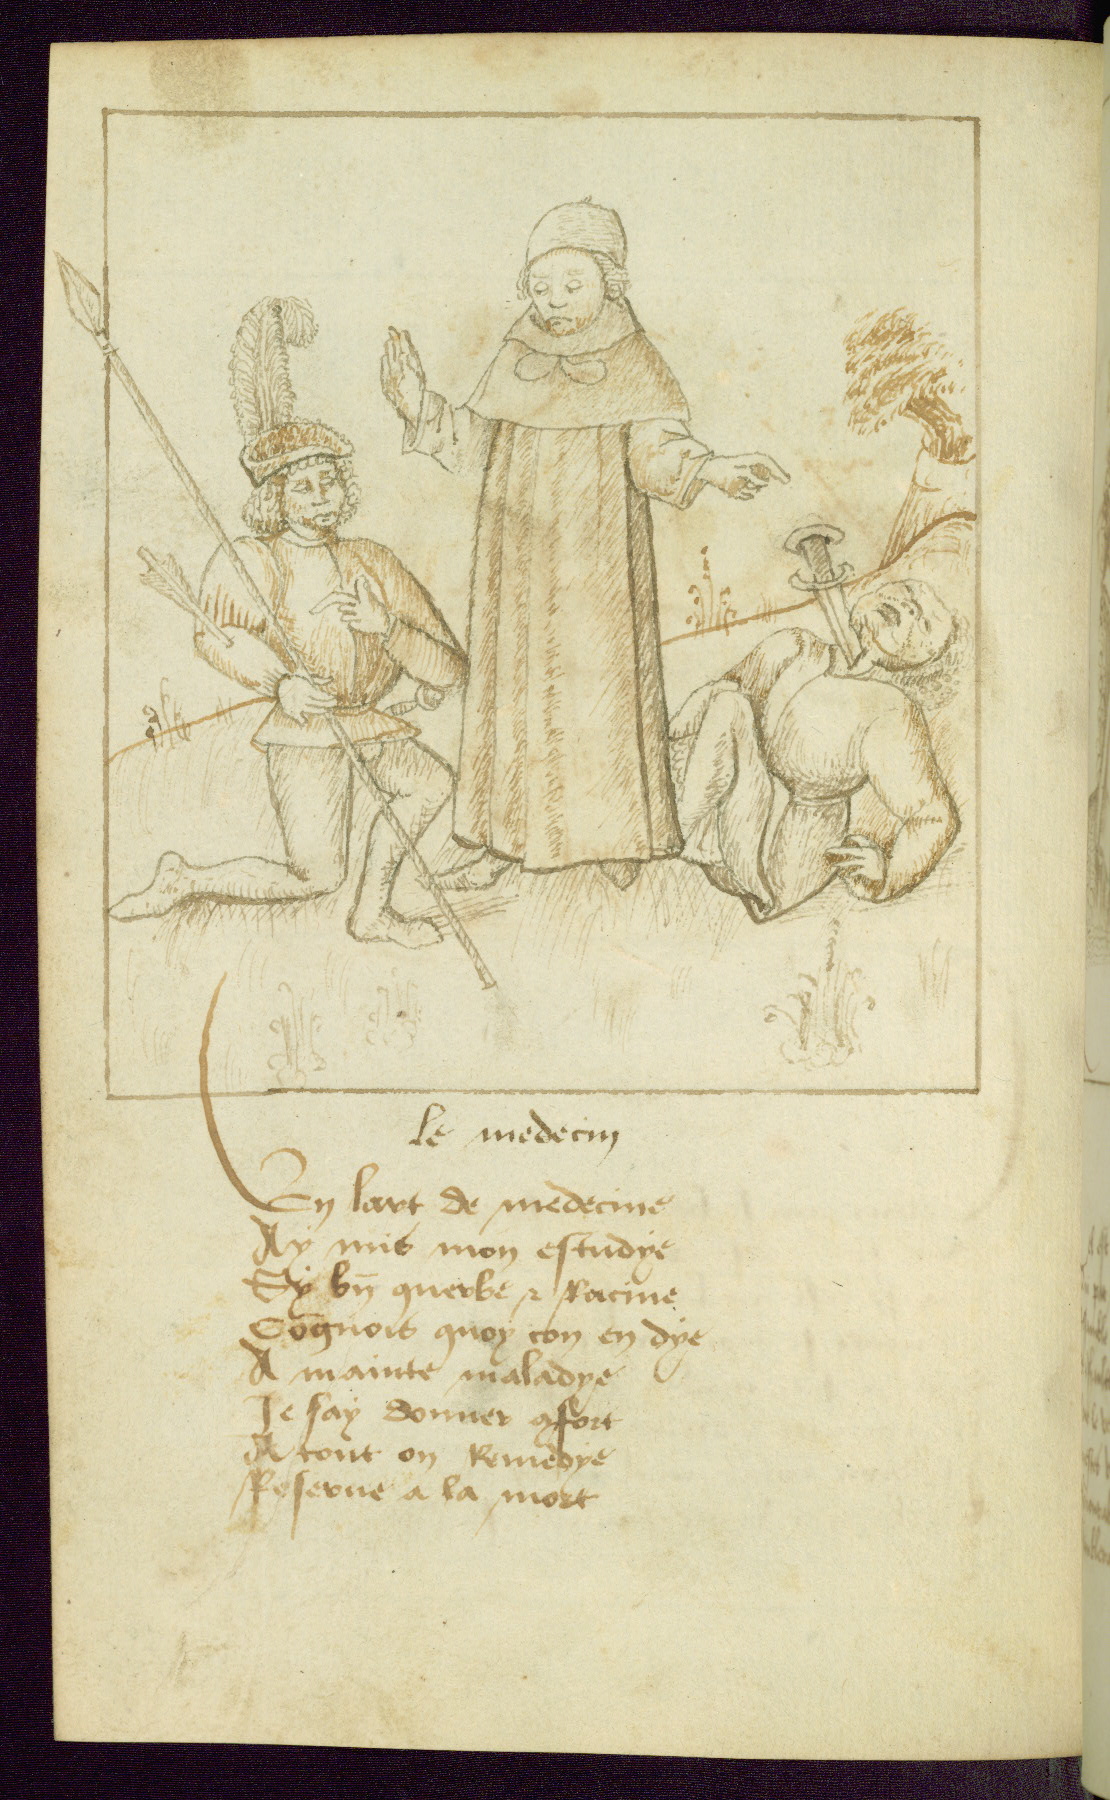 le medecin
En lart de medecine
Ay mis mon estudye
Sy bn̄ querbe ⁊ Racine
Cōgnois quoy con en dye
A mainte maladye
Je say donner ꝯfort
A tout on Remedye
Reserue a la mort